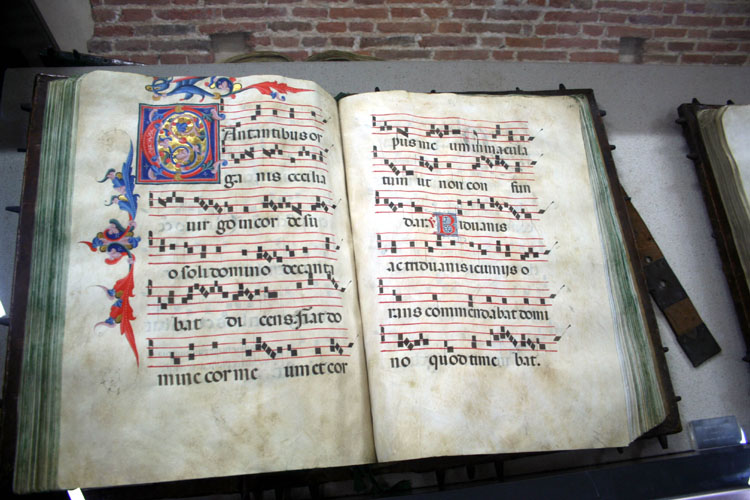 CAntantibus or
ga nis cecilia
uir go in cor de su
o soli domino decanta
bat di cens. fiat do
mine cor me um et cor
pus me um inmacula
tum ut non con fun
dar. Biduanis
ac triduanis ieiunijs o
rans commendabat domi
no quod time bat.